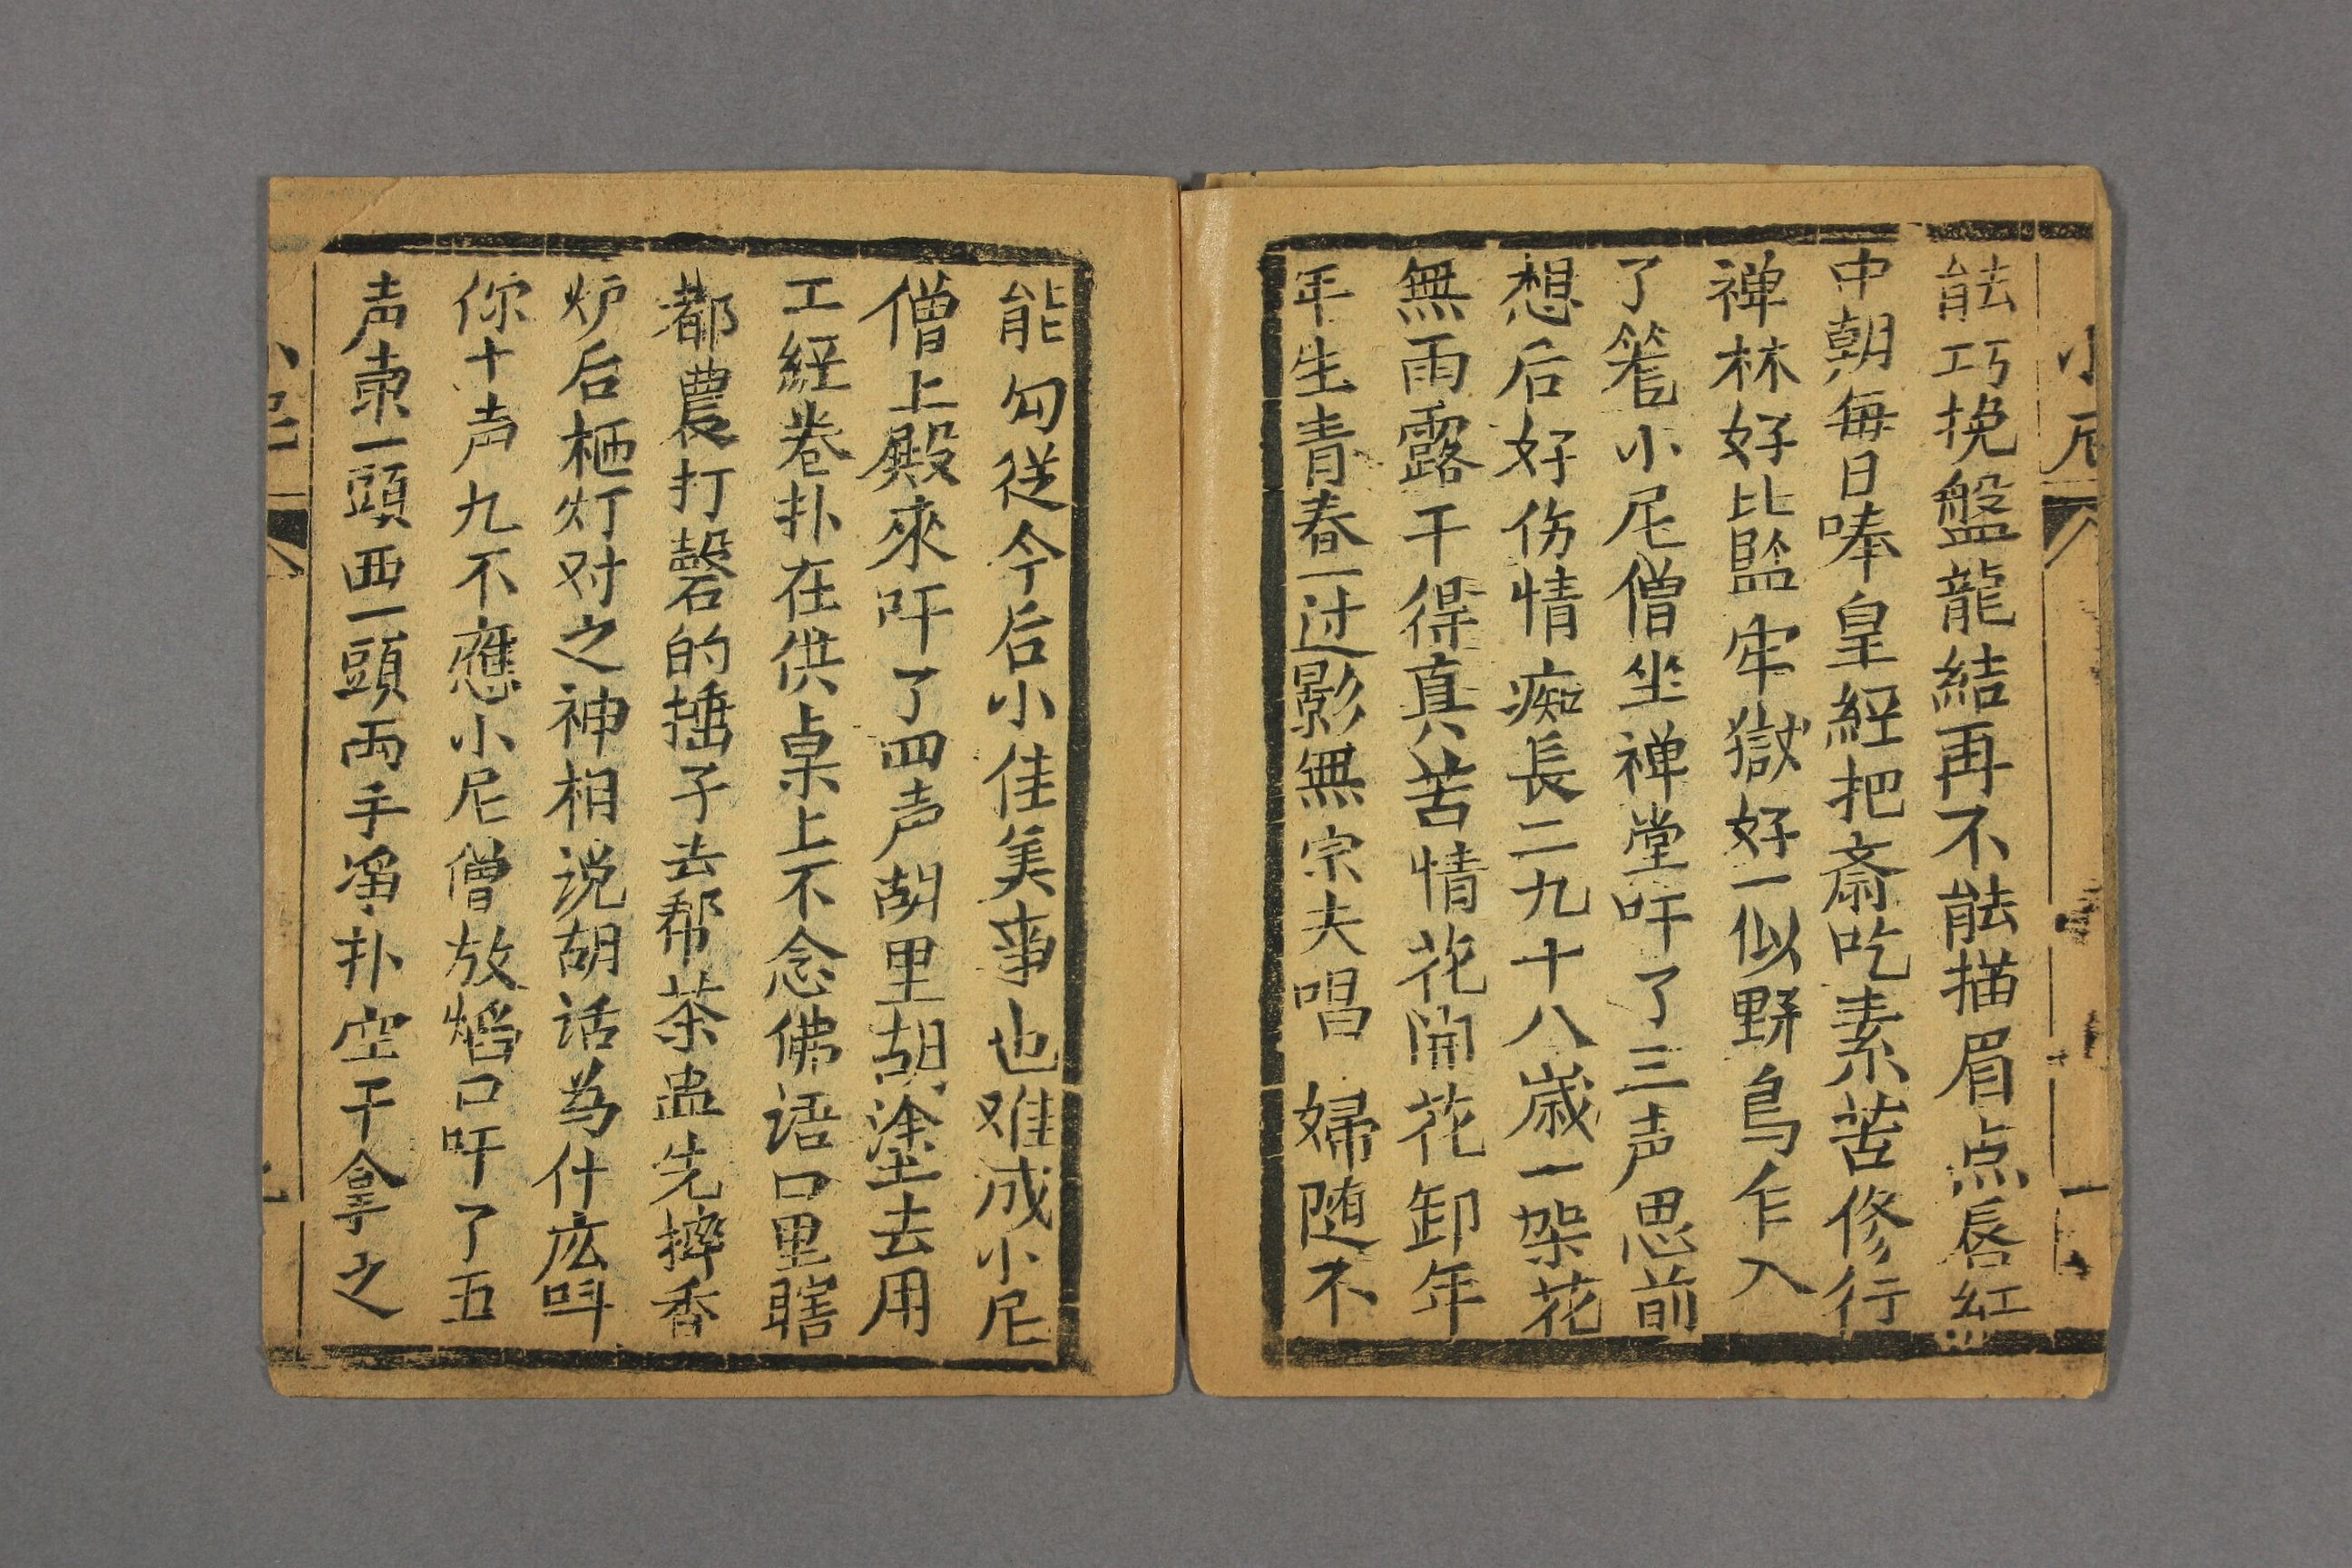 小尼
一
能巧挽盤龍結再不能描眉点唇紅
中朝每日唪皇経把斋吃素苦修行
禅林好比監牢獄好一似野鳥乍入
了笼小尼僧坐禅堂吀了三声思前
想后好伤情痴長二九十八歲一架花
無雨露干得真苦情花開花卸年
年生青春一过影無宗夫唱婦随不
能勾従今后小佳美事也难成小尼
僧上殿來吀了四声胡里胡塗去用
工経卷扑在供桌上不念佛语口里瞎
都農打磬的捶子去帮茶盅先摔香
炉后栖灯对之神相说胡话為什庅呌
你十声九不應小尼僧放熖口吀了五
声東一頭西一頭両手溜扑空干拿之
小尼